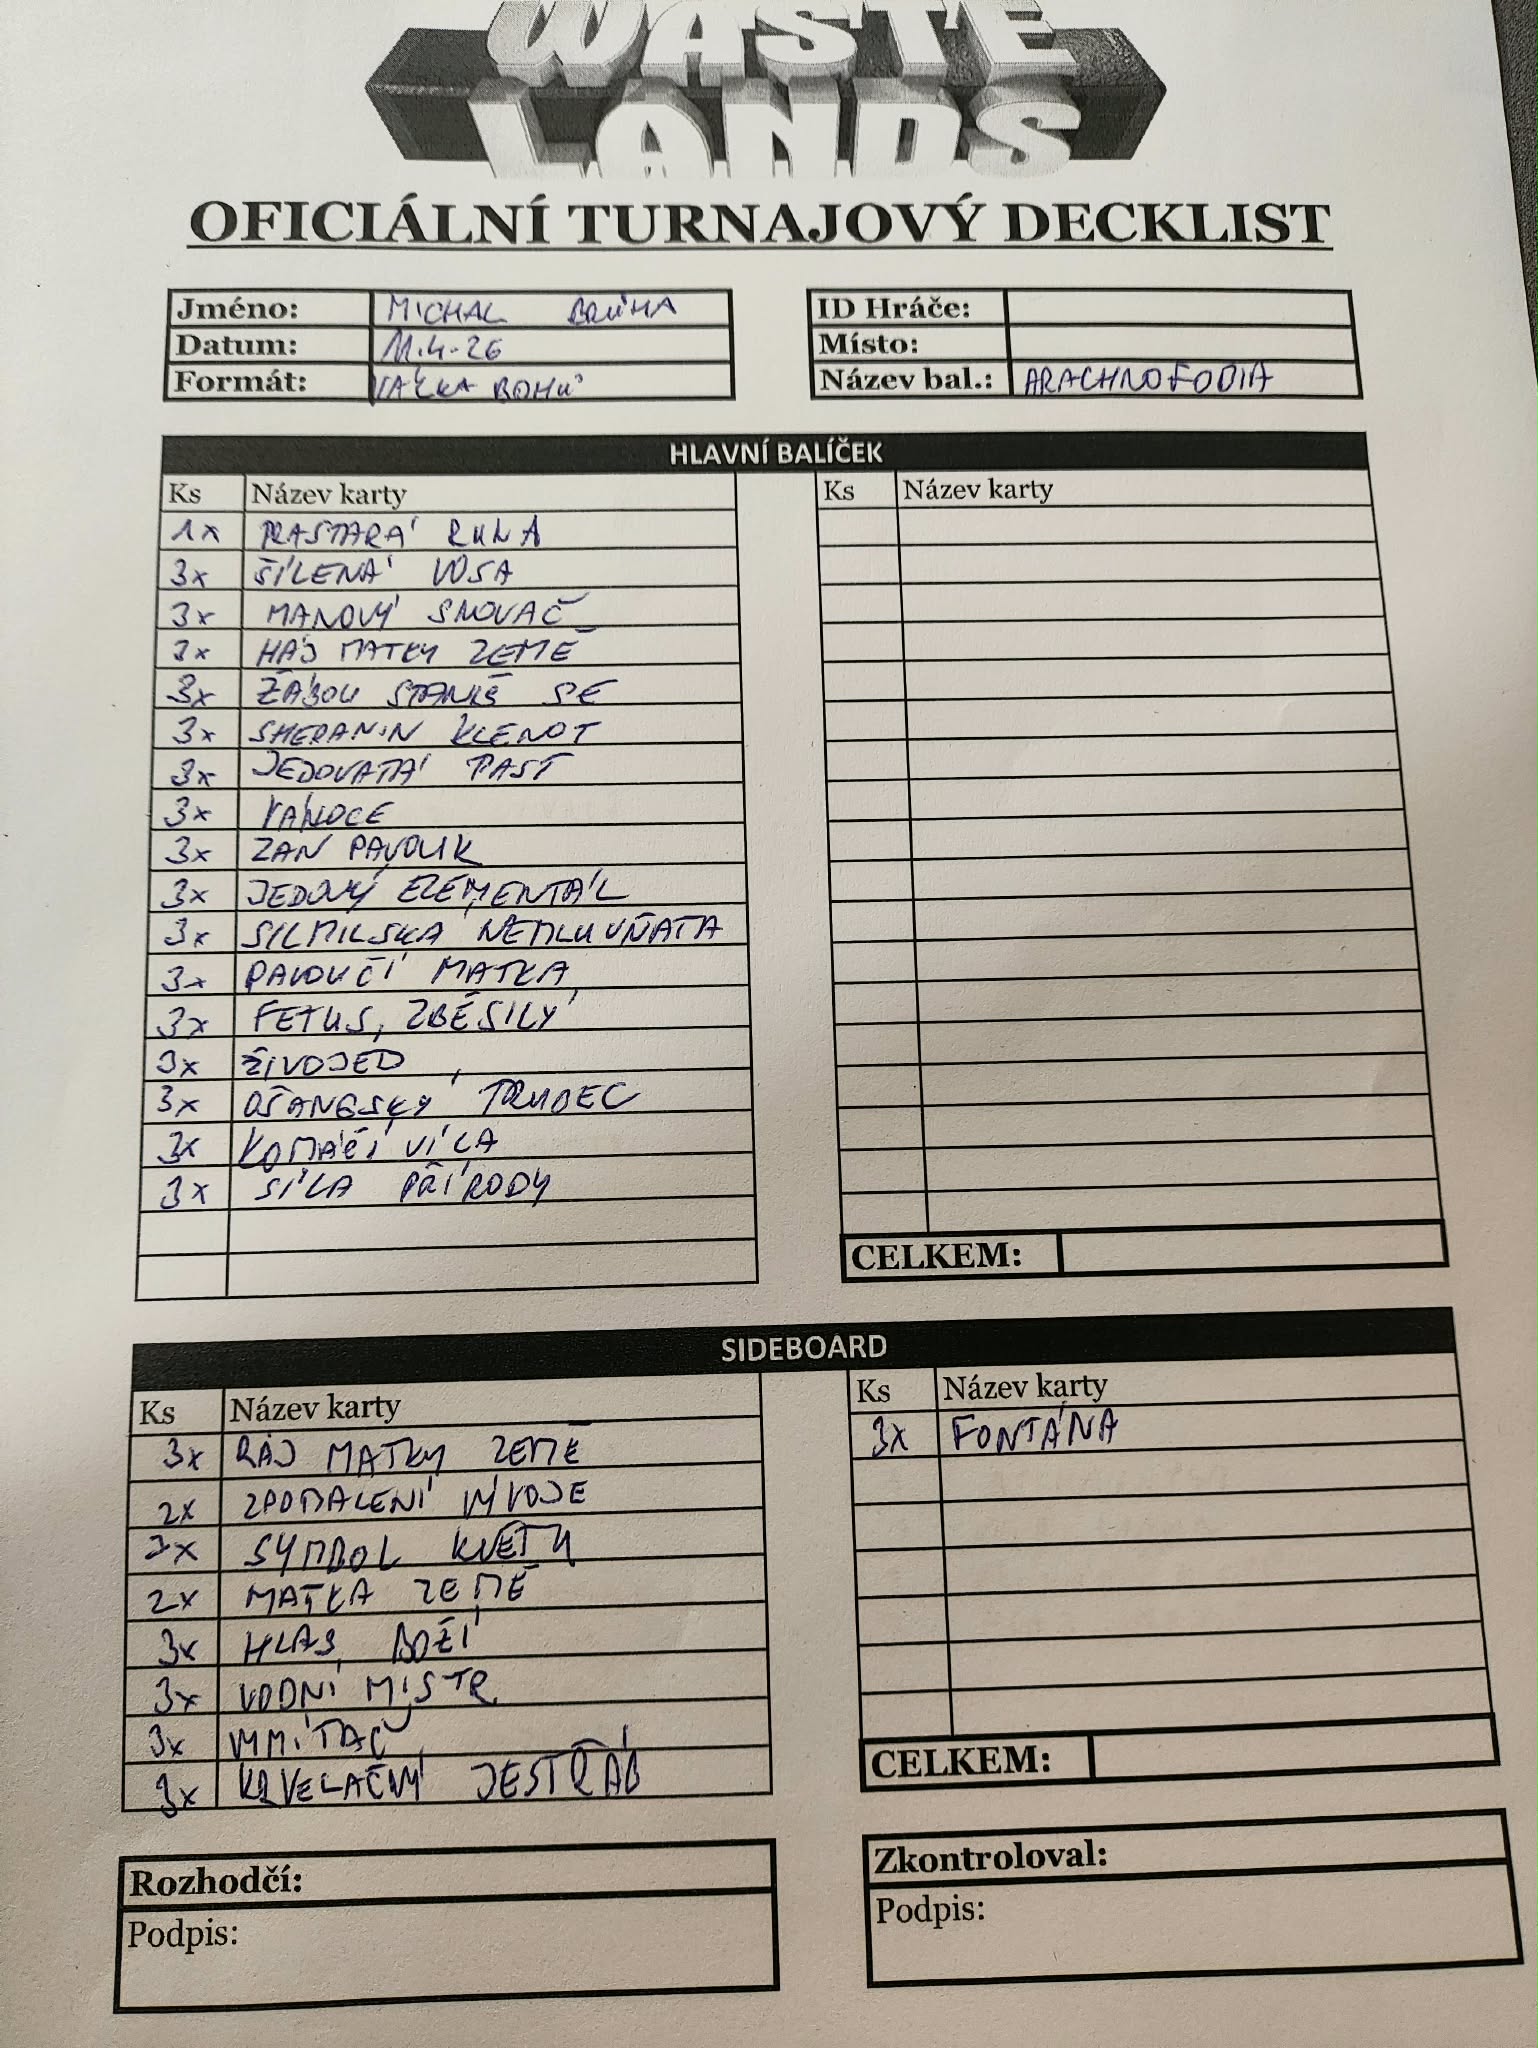 WASTE
LANDS
OFICIÁLNÍ TURNAJOVÝ DECKLIST
Jméno: MICHAL BRŮHA
Datum: 11.4.26
Formát: VÁLKA BOHŮ
ID Hráče:
Místo:
Název bal.: ARACHNOFOBIA
HLAVNÍ BALÍČEK
Ks Název karty
1x PRASTARÁ RUNA
3x ŠÍLENÁ VOSA
3x MANOVÝ SNOVAČ
3x HÁJ MATKY ZEMĚ
3x ŽÁBOU STANIŠ SE
3x SHERANIN KLENOT
3x JEDOVATÁ PAST
3x VÁNOCE
3x ZAN PAVOUK
3x JEDOVÝ ELEMENTÁL
3x SILMILSKÁ NEMLUVŇATA
3x PAVOUČÍ MATKA
3x FETUS, ZBĚSILÝ
3x ŽIVOJED
3x OŠANGSKÝ TRUBEC
3x KOMÁŘÍ VÍLA
3x SÍLA PŘÍRODY
Ks Název karty
CELKEM:
SIDEBOARD
Ks Název karty
3x RÁJ MATKY ZEMĚ
2x ZPOMALENÍ VÝVOJE
2x SYMBOL KVĚTU
2x MATKA ZEMĚ
3x HLAS BOŽÍ
3x VODNÍ MISTR
3x VYMÍTAČ
3x KRVELAČNÝ JESTŘÁB
Ks Název karty
3x FONTÁNA
CELKEM:
Rozhodčí:
Podpis:
Zkontroloval:
Podpis: